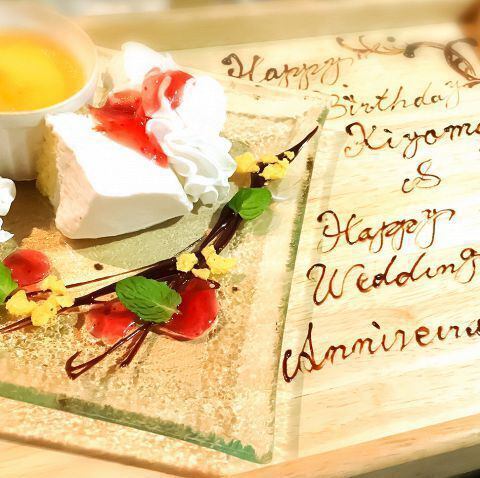 Happy
Birthday
Kiyomi
&
Happy
Wedding
Anniversa